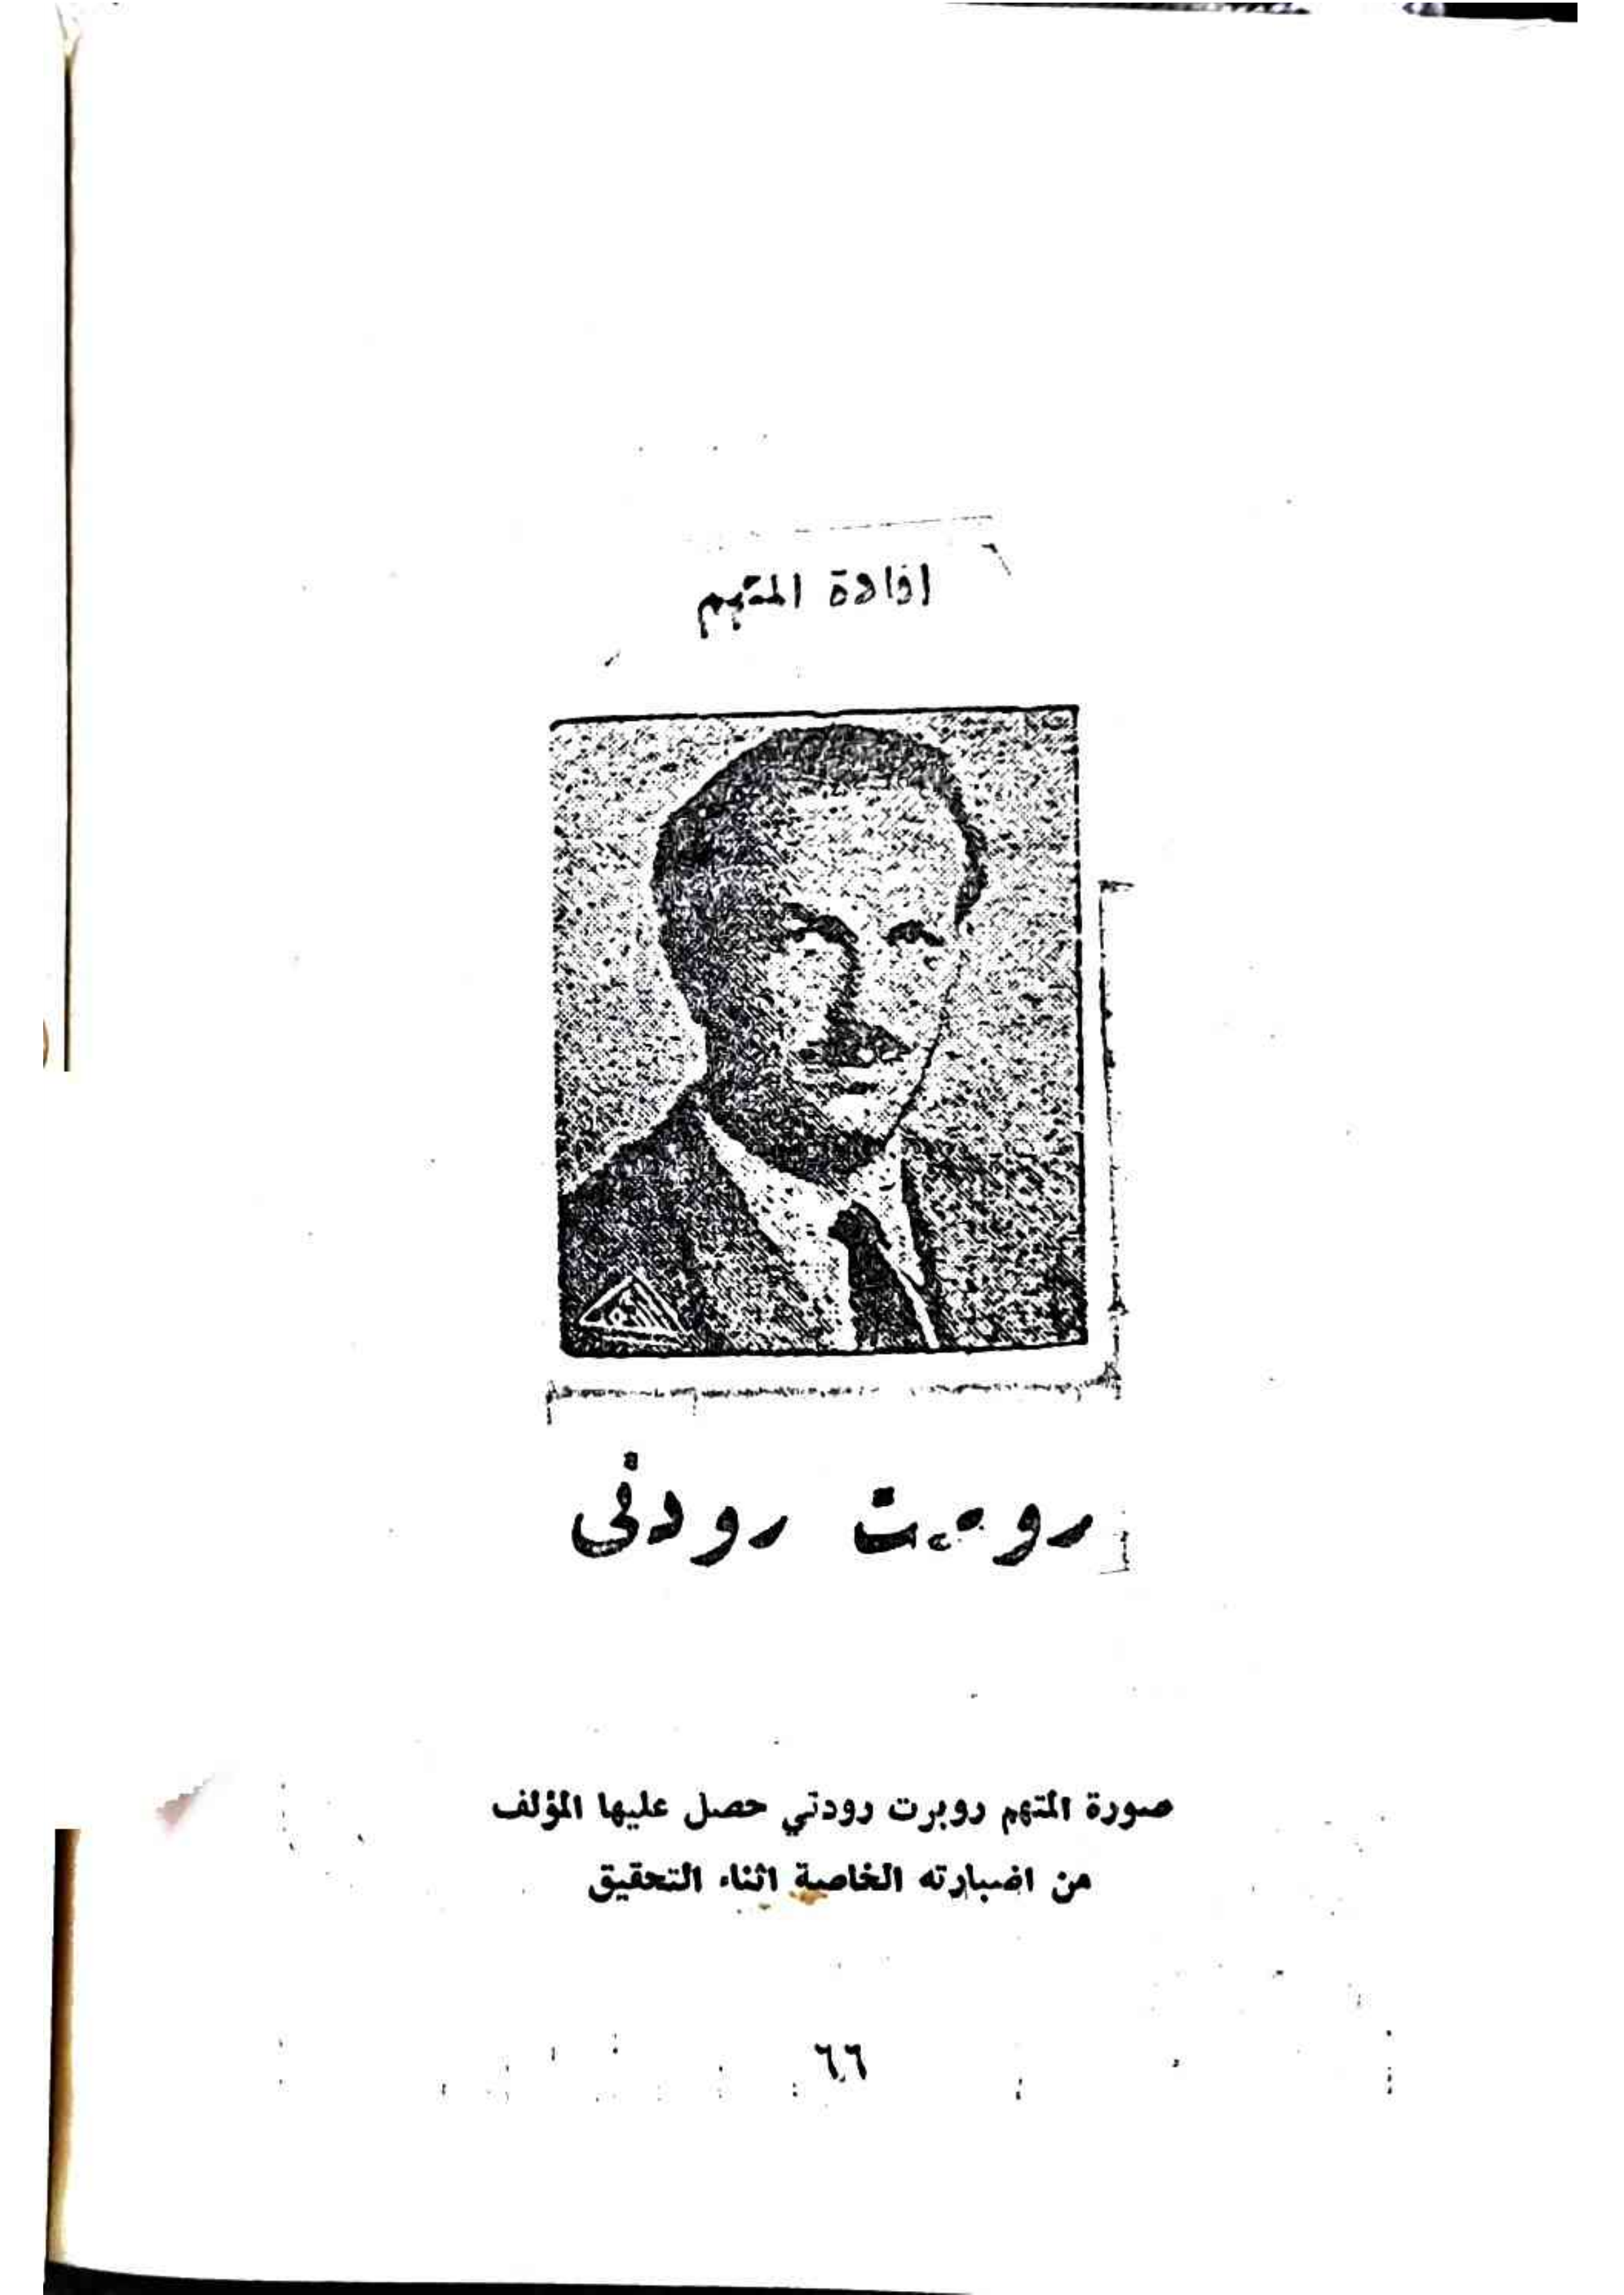 افادة المتهم
رودني
صورة المتهم روبرت رودتي حصل عليها المؤلف
من اضبارته الخاصة اثناء التحقيق
٦٦